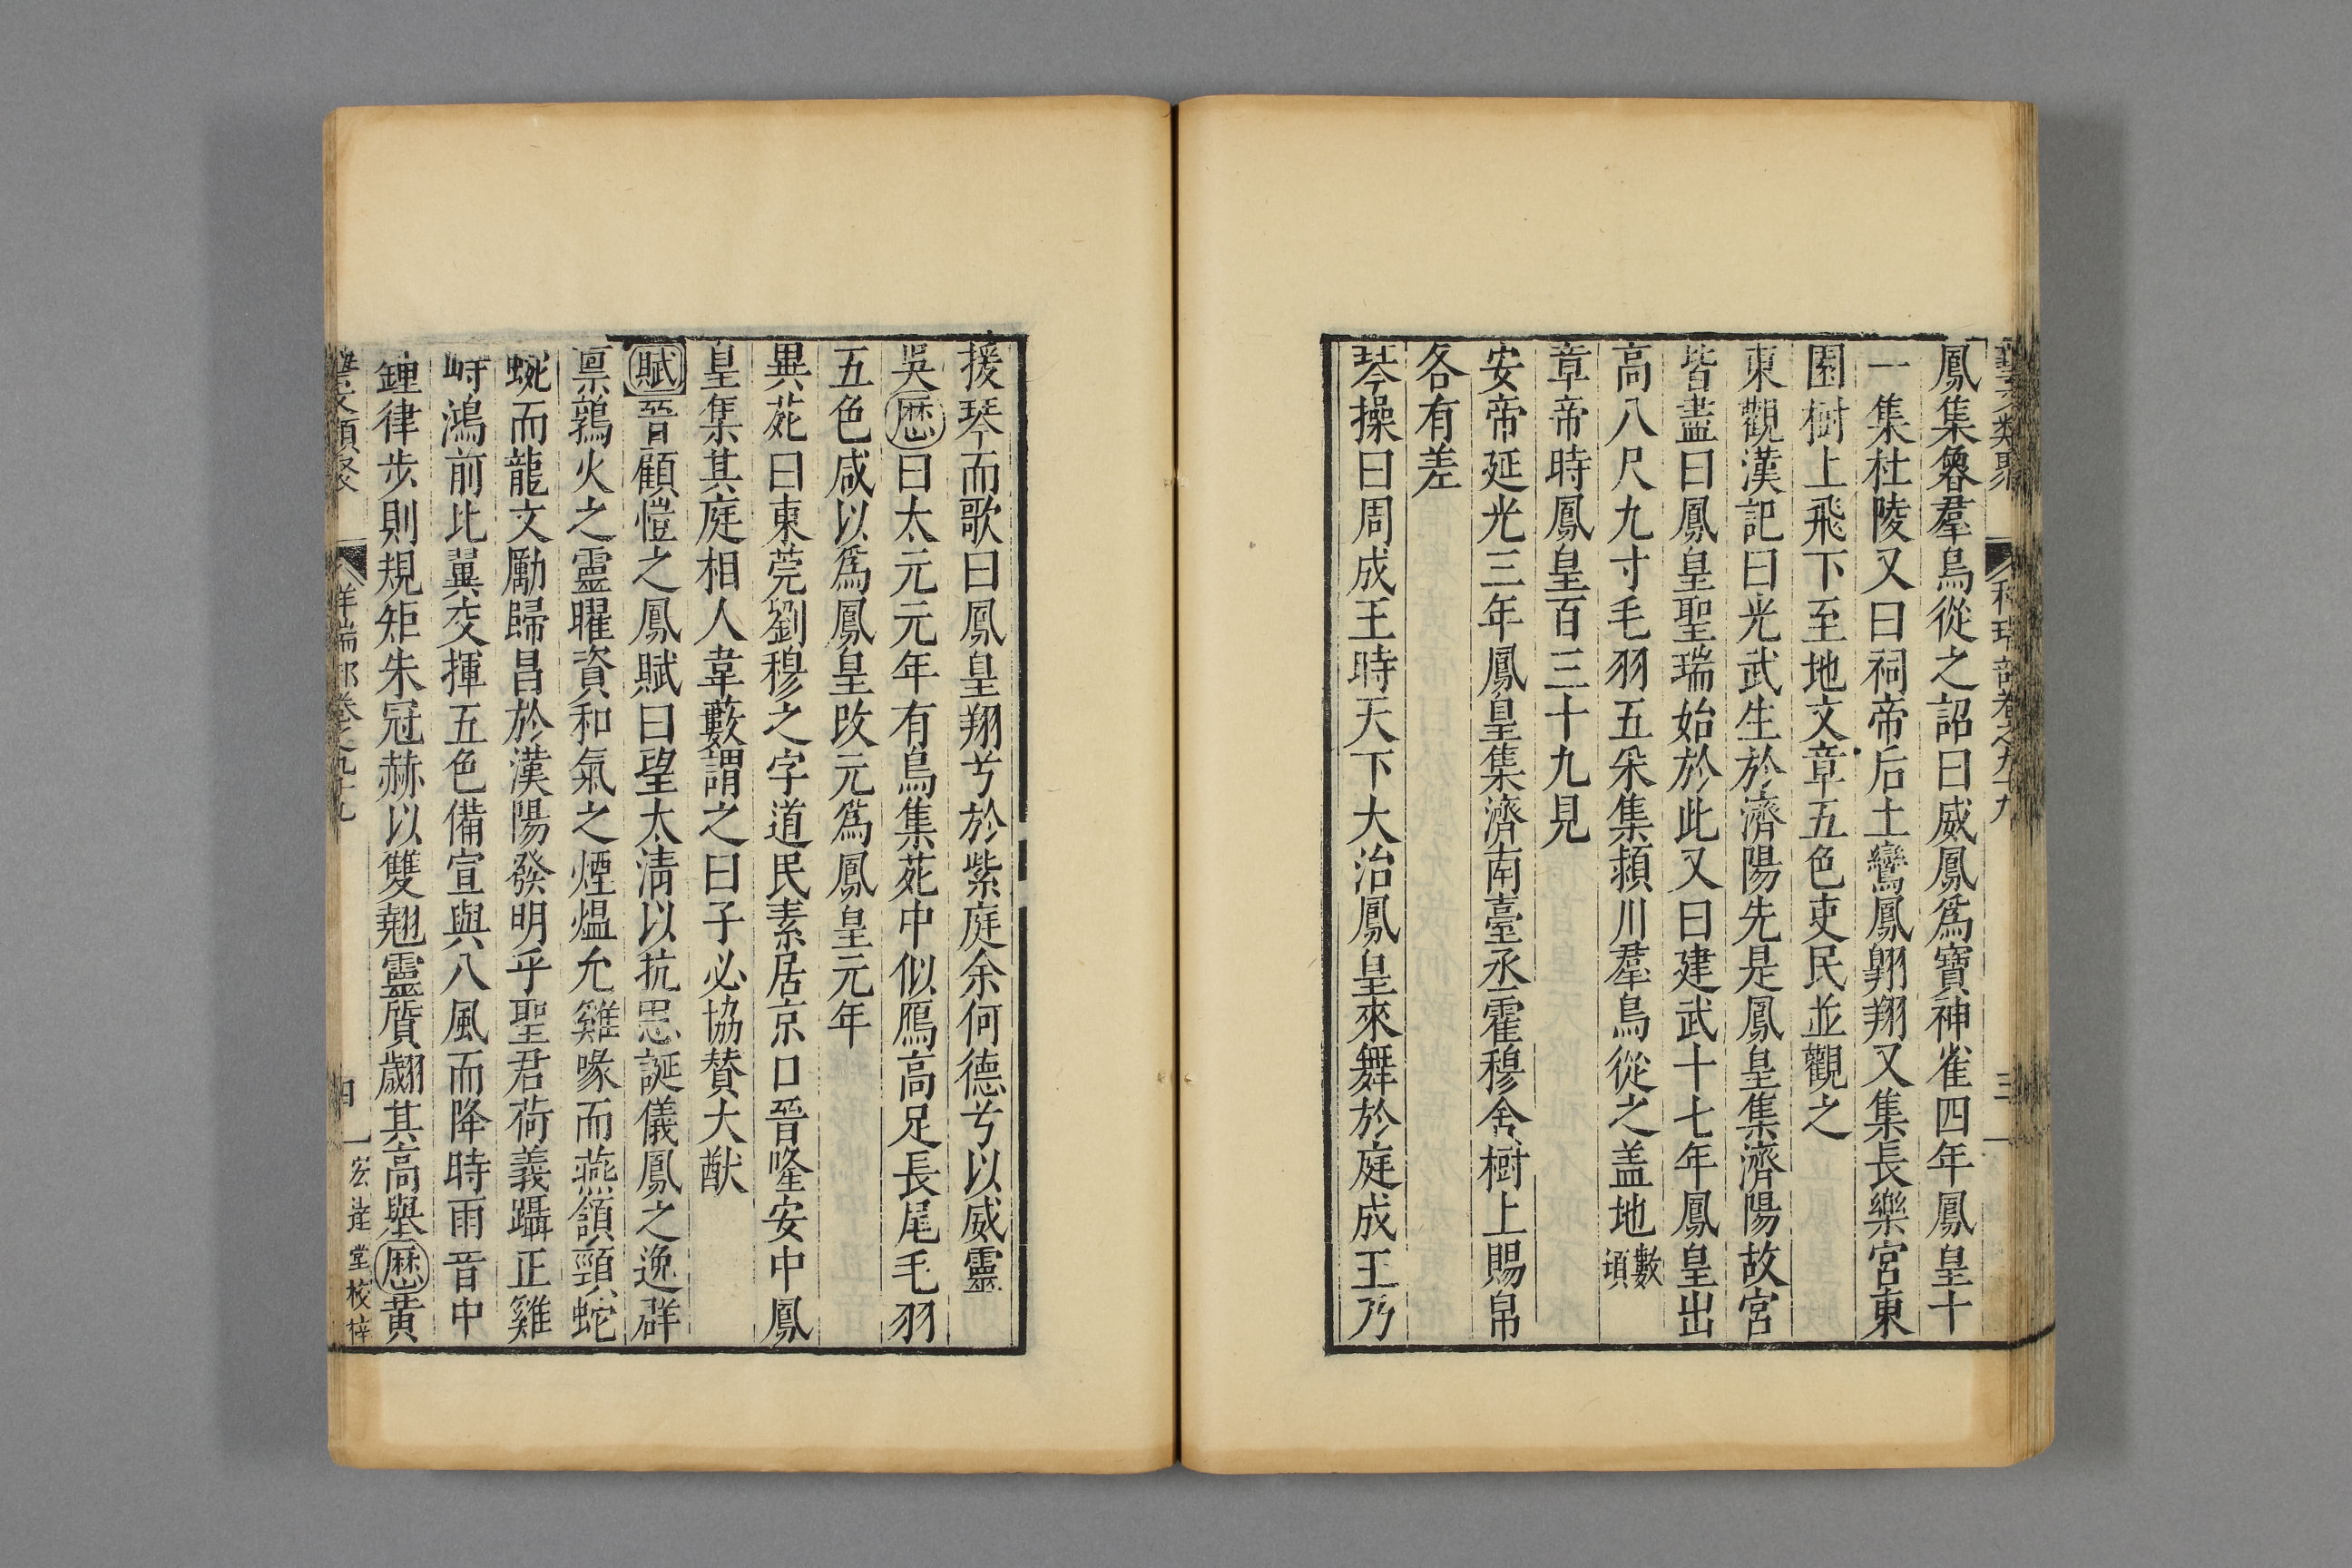 藝文類聚 祥瑞部卷之九十九 三
鳳集魯羣鳥從之詔曰威鳳爲寶神雀四年鳳皇十
一集杜陵又曰祠帝后土鸞鳳翺翔又集長樂宮東
園樹上飛下至地文章五色吏民並觀之
東觀漢記曰光武生於濟陽先是鳳皇集濟陽故宮
皆畫曰鳳皇聖瑞始於此又曰建武十七年鳳皇出
高八尺九寸毛羽五采集潁川羣鳥從之盖地數頃
章帝時鳳皇百三十九見
安帝延光三年鳳皇集濟南臺丞霍穆舍樹上賜帛
各有差
琴操曰周成王時天下大治鳳皇來舞於庭成王乃
援琴而歌曰鳳皇翔兮於紫庭余何德兮以威靈
吳歷曰太元元年有鳥集苑中似鴈高足長尾毛羽
五色咸以爲鳳皇改元爲鳳皇元年
異苑曰東莞劉穆之字道民素居京口晉隆安中鳳
皇集其庭相人韋藪謂之曰子必協贊大猷
賦晉顧愷之鳳賦曰望太清以抗思誕儀鳳之逸群
禀鶉火之靈曜資和氣之煙熅允雞喙而燕頷頸蛇
蜿而龍文勵歸昌於漢陽發明乎聖君荷義躡正雞
峙鴻前比翼交揮五色備宣與八風而降時雨音中
鍾律步則規矩朱冠赫以雙翹靈質翽其高舉歷黄
藝文類聚 祥瑞部卷之九十九 四 宏達堂校梓